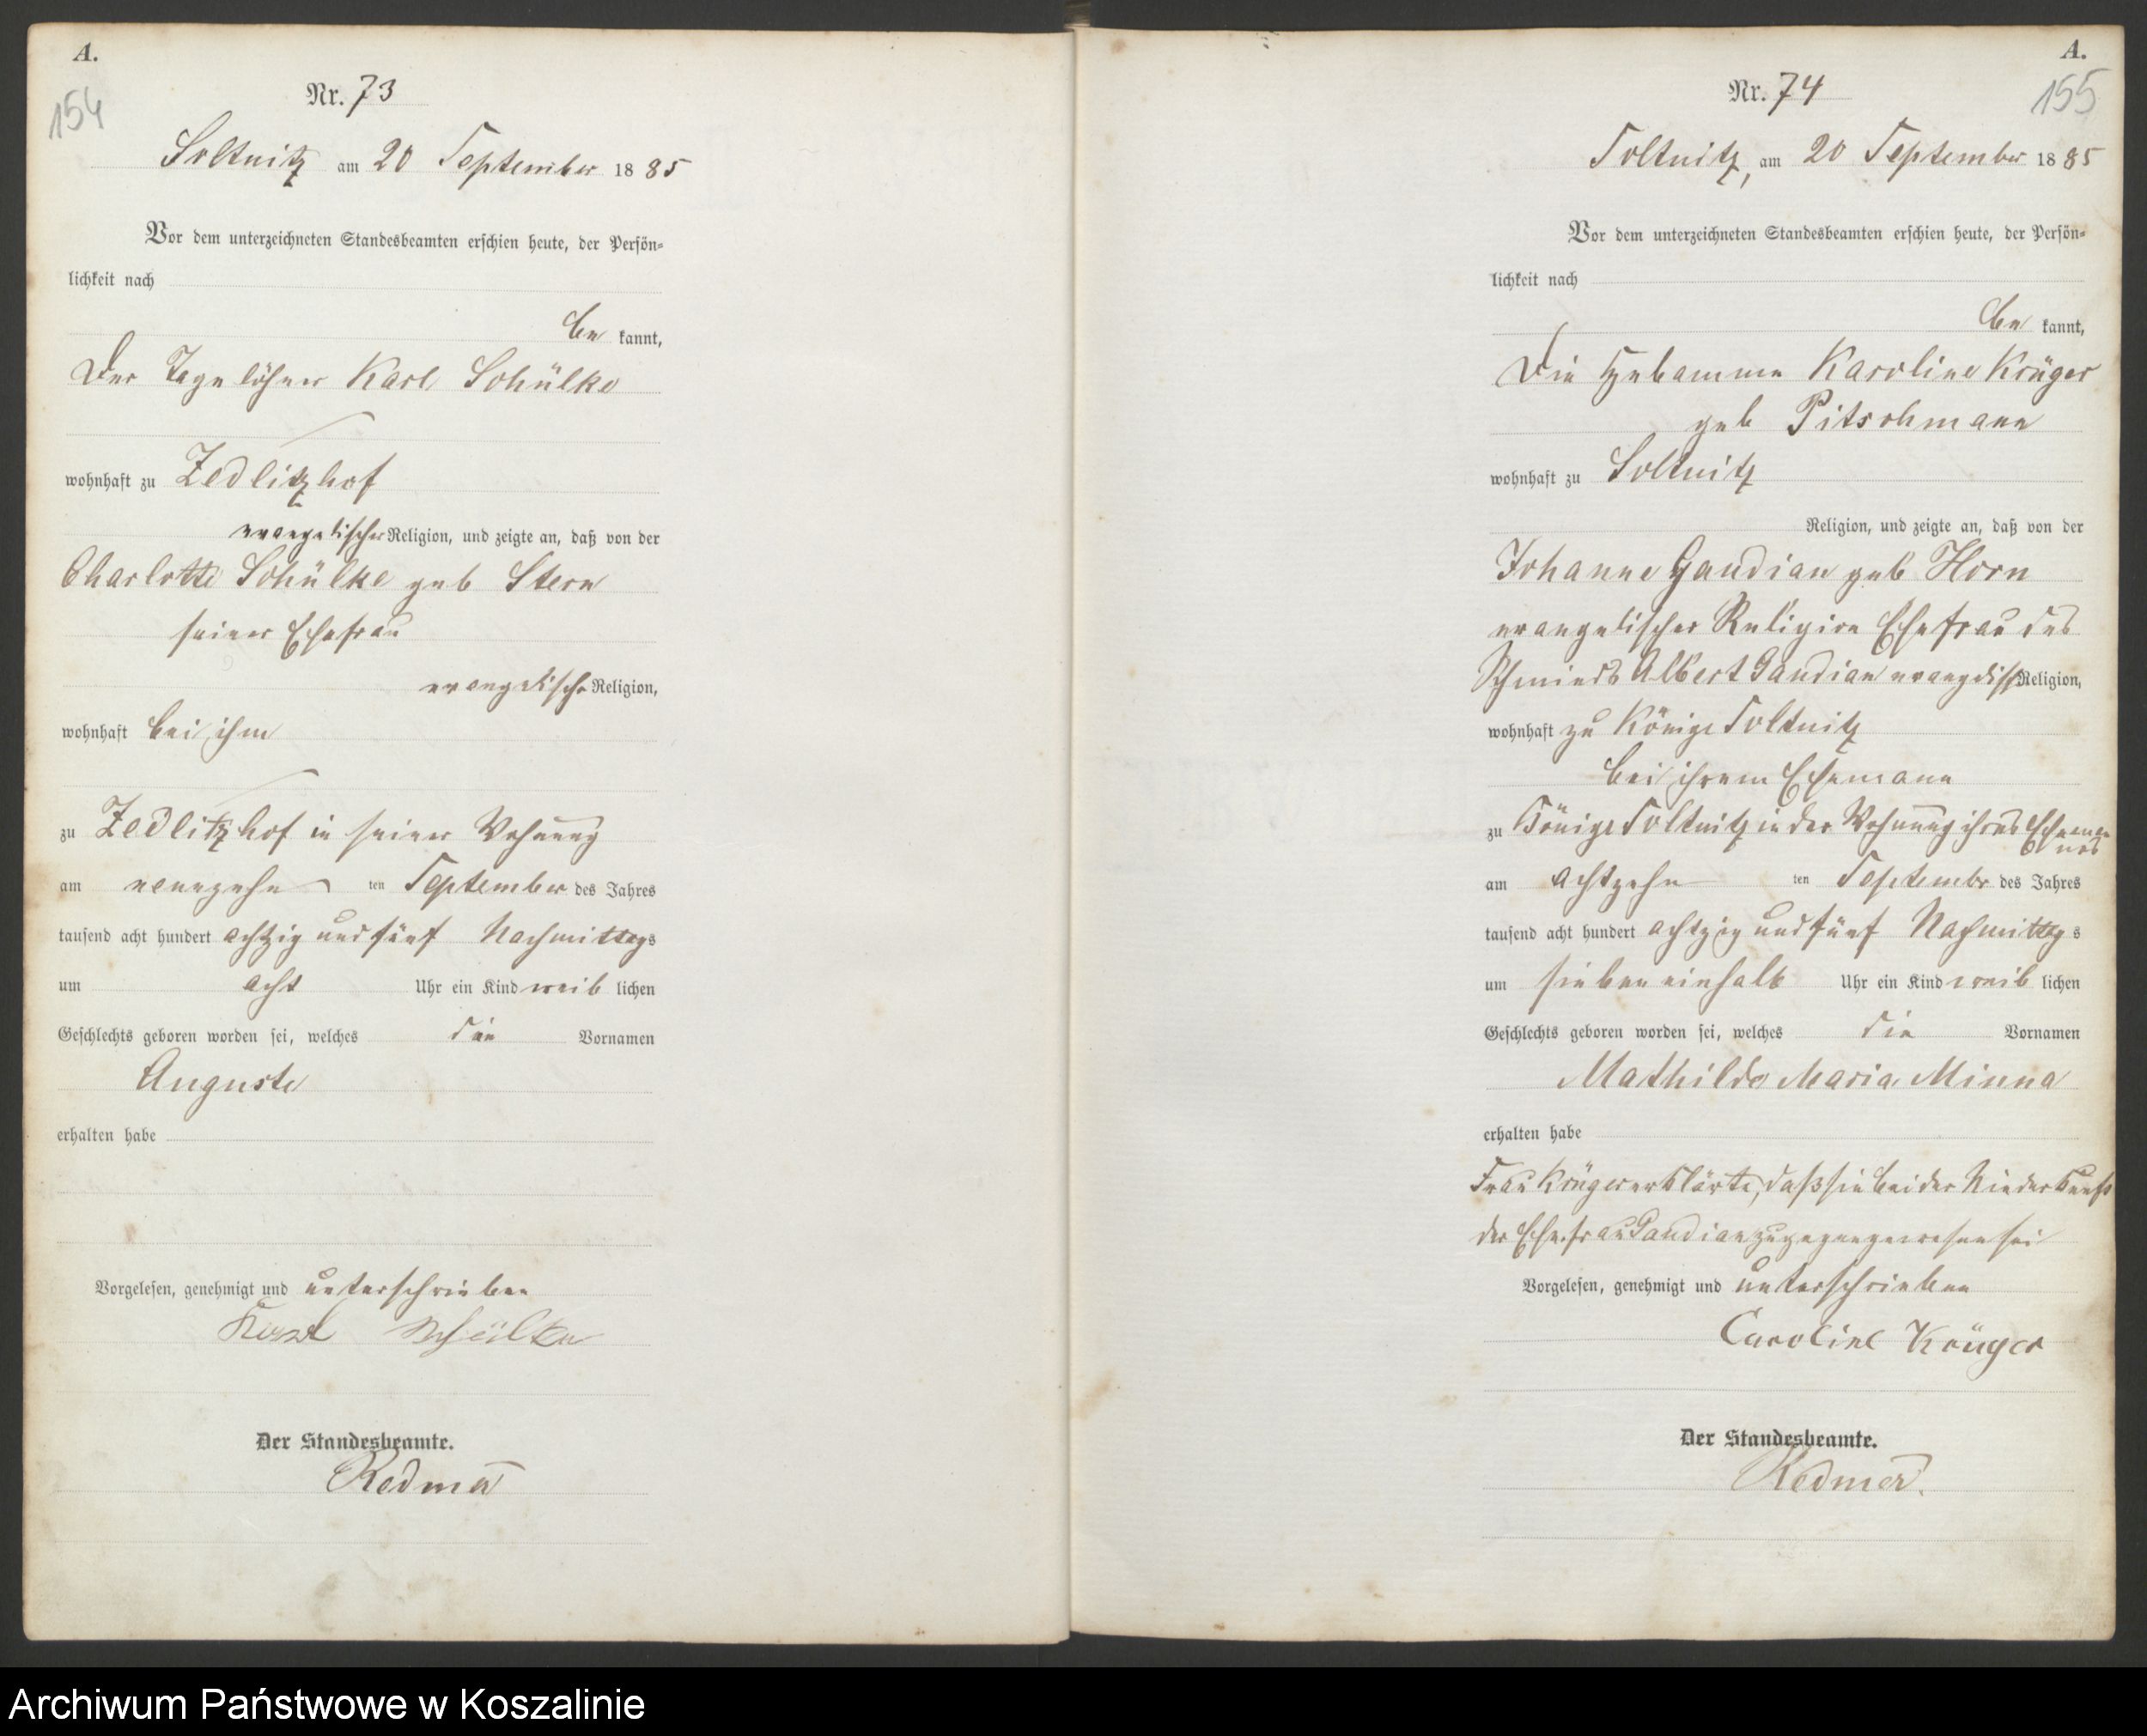 A.
154
Nr. 73
Soltnitz am 20 September 1885
Vor dem unterzeichneten Standesbeamten erschien heute, der Persön-
lichkeit nach
be kannt,
Der Tagelöhner Karl Schülke
wohnhaft zu Zedlitzhof
evangelischer Religion, und zeigte an, daß von der
Charlotte Schülke geb Stern
seiner Ehefrau
evangelischer Religion,
wohnhaft bei ihm
zu Zedlitzhof in seiner Wohnung
am neunzehn ten September des Jahres
tausend acht hundert achtzig und fünf Nachmittags
um acht Uhr ein Kind weib lichen
Geschlechts geboren worden sei, welches die Vornamen
Auguste
erhalten habe
Vorgelesen, genehmigt und unterschrieben
Karl Schülke
Der Standesbeamte.
Redmer
A.
155
Nr. 74
Soltnitz, am 20 September 1885
Vor dem unterzeichneten Standesbeamten erschien heute, der Persön-
lichkeit nach
be kannt,
Die Hebamme Karoline Krüger
geb Pitschmann
wohnhaft zu Soltnitz
Religion, und zeigte an, daß von der
Johanne Gaudian geb Horn
evangelischer Religion Ehefrau des
Schmieds Albert Gaudian evangelisch Religion,
wohnhaft zu Königs Soltnitz
bei ihrem Ehemann
zu Königs Soltnitz in der Wohnung ihres Eheman
nes
am achtzehn ten Septembr des Jahres
tausend acht hundert achtzig und fünf Nachmittag s
um sieben einhalb Uhr ein Kind weib lichen
Geschlechts geboren worden sei, welches die Vornamen
Mathilde Maria Minna
erhalten habe
Frau Krüger erklärte, daß sie bei der Niederkunft
der Ehefrau Gaudian zugegen gewesen sei
Vorgelesen, genehmigt und unterschrieben
Caroline Krüger
Der Standesbeamte.
Redmer.
Archiwum Państwowe w Koszalinie